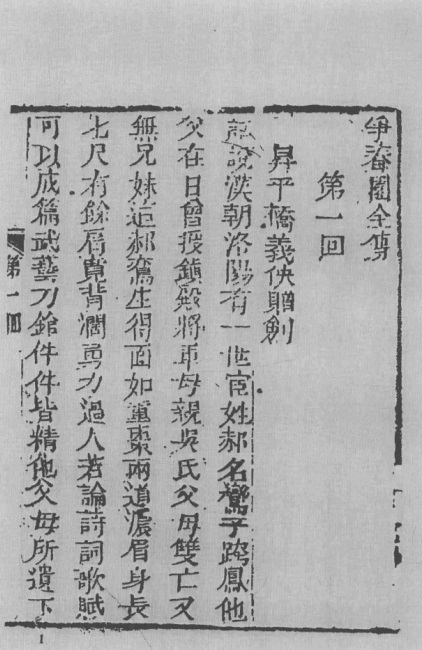 爭春園全傳
第一回
昇平橋義俠贈劍
話說漢朝洛陽有一世宦姓郝名鸞字跨鳳他
父在日曾授鎮殿將軍母親吳氏父母雙亡又
無兄妹這郝鸞生得面如重棗兩道濃眉身長
七尺有餘肩寬背濶勇力過人若論詩詞歌賦
可以成篇武藝刀鎗件件皆精他父母所遺下
第一回
1